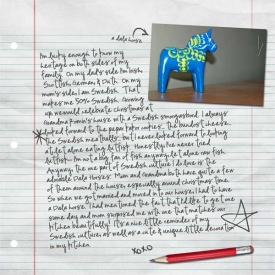 a dala horse
I'm lucky enough to know my
heritage on both sides of my
family. On my dad's side I'm Irish
Scottish, German & Dutch. On my
mom's side, I am Swedish. That
makes me 50% Swedish. Growing
up we would celebrate Christmas at
Grandma &  house with a Swedish smorgasbord. I always
looked forward to the  cookies... the  cheese...
the Swedish meatballs... but I never looked forward to looking
at, let alone eating lutfisk. Honestly I've never tried
lutfisk - I'm not a big fan of fish anyway, let alone raw fish.
Anyway, the one part of Swedish culture I do love is the
adorable Dala Horses. Mom and Grandma both have quite a few
of them around the house, especially around Christmas time.
So when we got married and moved in to our house, I had to have
a Dala horse. I had mentioned the fact that I'd like to get one
some day and mom surprised me with one that matches our
kitchen beautifully! It's a nice little reminder of my
Swedish culture as well as a cute & unique little decoration
in my kitchen.
XOXO